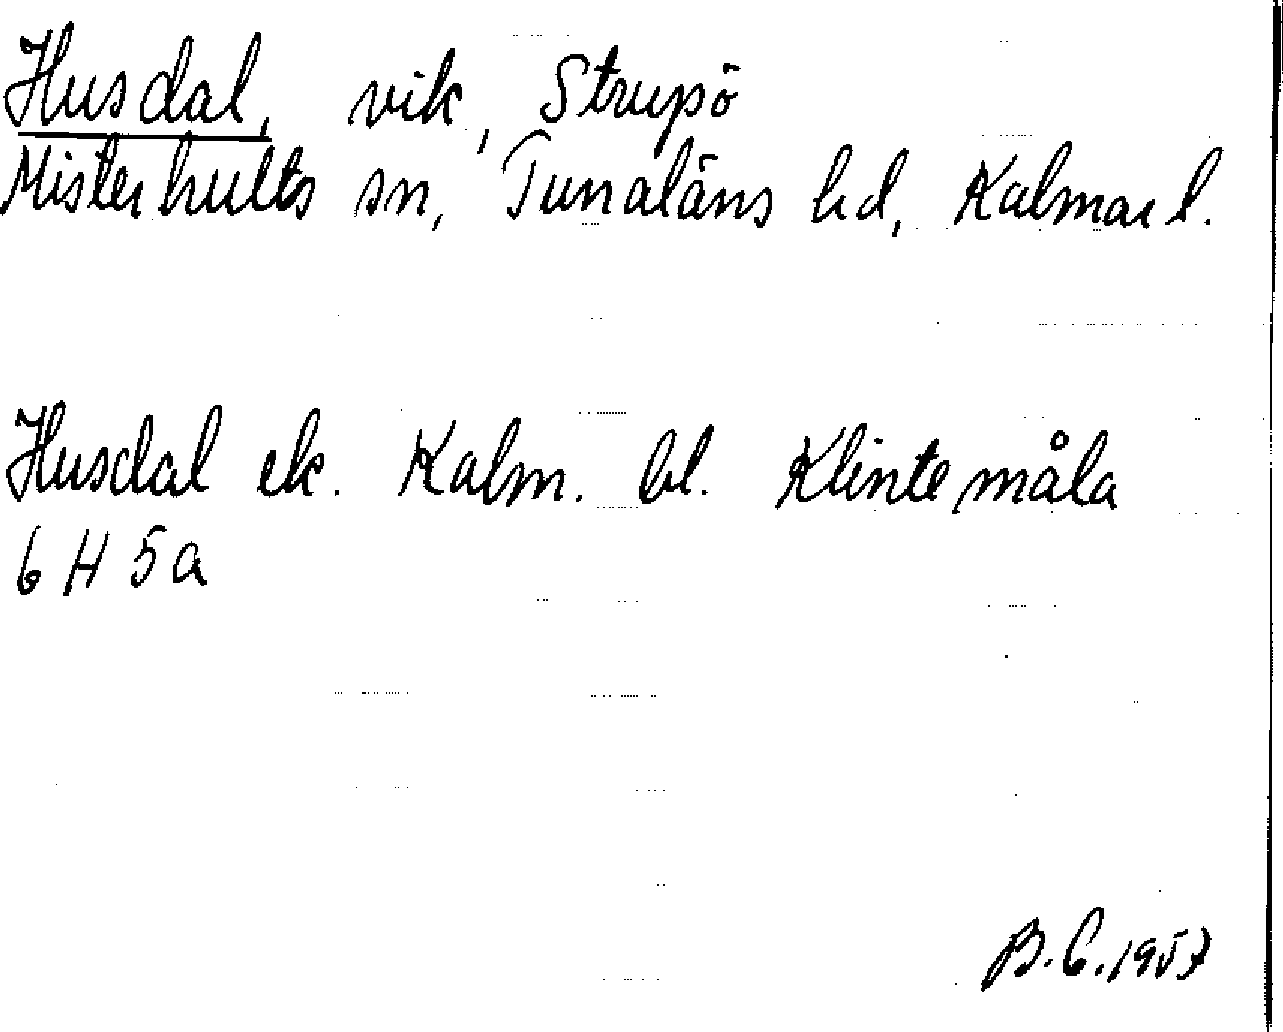 Husdal, vik, Strupö
Misterhults sn, Tunaläns hd, Kalmar l.
Husdal ek. Kalm. bl. Klintemåla
6 H 5a
B.C. 1957